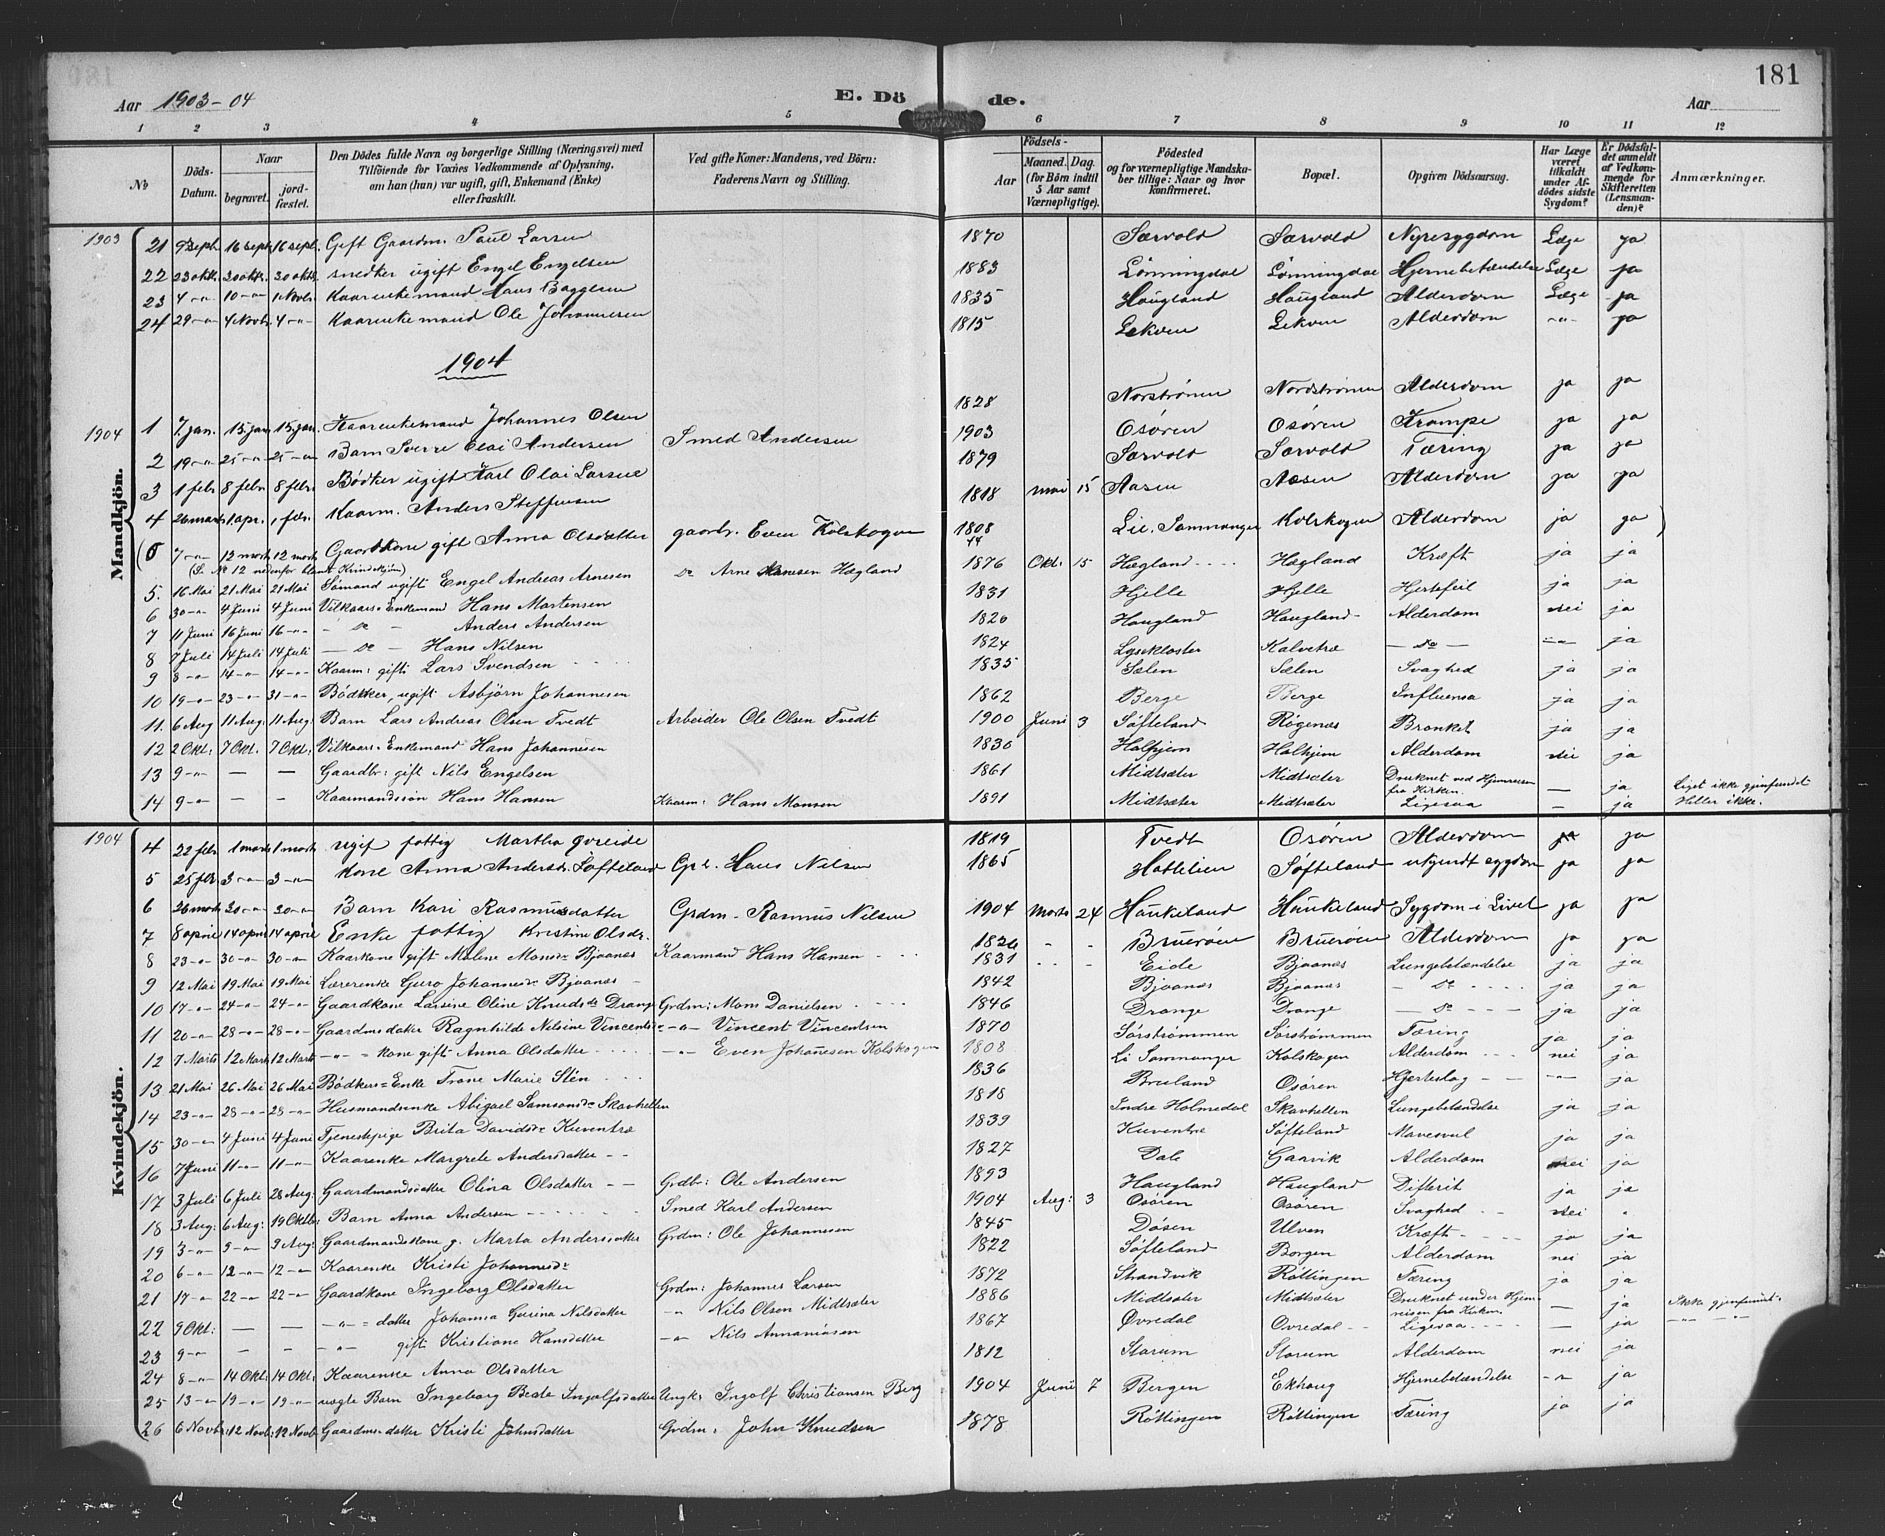 181
Aar 1903-04
E. Döde.
Aar
1 2 3 4 5 6 7 8 9 10 11 12
No
Döds-Datum.
Naar
begravet.
jordfæstet.
Den Dödes fulde Navn og borgerlige Stilling (Næringsvei) med Tilföiende for Voxnes Vedkommende af Oplysning, om han (hun) var ugift, gift, Enkemand (Enke) eller fraskilt.
Ved gifte Koner: Mandens, ved Börn: Faderens Navn og Stilling.
Födsels-
Aar
Maaned. Dag.
(for Börn indtil 5 Aar samt Værnepligtige).
Födested og for værnepligtige Mandskaber tillige: Naar og hvor konfirmeret.
Bopæl.
Opgiven Dödsaarsag.
Har Læge været tilkaldt under Afdödes sidste Sygdom?
Er Dödsfaldet anmeldt af Vedkommende for Skifteretten (Lensmanden)?
Anmærkninger.
1903
21 9 sept. 16 sept. 16 sept. Gift Gaardm. Paul Larsen 1870 Særvold Særvold Nyresygdom Læge ja
22 23 oktr. 30 oktr. 30 oktr. snedker ugift Engel Engelsen 1883 Lönningdal Lönningdal Hjernebetændelse Læge ja
23 4 -"- 10 -"- 1 Novbr. Kaarenkemand Hans Baggesen 1835 Haugland Haugland Alderdom Læge ja
24 29 -"- 4 Novbr. 4 -"- Kaarenkemand Ole Johannesen 1815 Lekven Lekven Alderdom -"- ja
1904
1904
Mandkjön.
1 7 jan. 15 jan. 15 jan. Kaarenkemand Johannes Olsen 1828 Norströnen Nordströnen Alderdom ja ja
2 19 -"- 25 -"- 25 -"- Barn Sverre Olai Andersen Smed Andersen 1903 Osören Osören Krampe ja ja
3 1 febr. 8 febr. 8 febr. Bödker ugift Karl Olai Larsen 1879 Særvold Særvold Tæring ja ja
4 26 marts 1 apr. 1 febr. Kaarm. Anders Steffensen 1818 mai 15 Aasen Aasen Alderdom ja ja
(5 7 -"- 12 marts 12 marts Gaardkone gift Anna Olsdatter gaardbr. Even Kolskogen 1808 Lie, Sammanger Kolskogen Alderdom ja ja )
(S. No 12 nedenfor blant Kvindekjön)
5. 16 Mai 21 Mai 21 Mai Sömand ugift Engel Andreas Arnesen do Arne Hansen Hægland 1876 Okt: 15 Hægland Hægland Kræft ja ja
6 30 -"- 4 Juni 4 Juni Vilkaars-Enkemand Hans Martensen 1831 Hjelle Hjelle Hjertefeil ja ja
7 11 Juni 16 Juni 16 -"- - do - Anders Andersen 1820 Haugland Haugland Alderdom nei ja
8 7 Juli 14 Juli 14 Juli - do - Hans Nilsen 1824 Lysekloster Kalvetræ - do - -"- ja
9 8 -"- 14 -"- 14 -"- Kaarm: gift Lars Svendsen 1835 Sælen Sælen Svaghed ja ja
10 19 -"- 23 -"- 31 -"- Bödker, ugift Asbjörn Johannesen 1862 Berge Berge Influensa ja ja
11. 6 Aug 11 Aug: 11 Aug: Barn Lars Andreas Olsen Tvedt Arbeider Ole Olsen Tvedt 1900 Juni 3 Söfteland Rögenæs Bronket ja ja
12 2 Okt: 7 Okt. 7 Okt: Vilkaars-Enkemand Hans Johannesen 1830 Halhjem Halhjem Alderdom nei ja
13 9 -"- — — Gaardbr: gift Nils Engelsen 1861 Midtsæter Midtsæter Druknet ved Hjemreisen fra Kirken. — ja Liget ikke gjenfundet
14 9 -"- — — Kaarmandssön Hans Hansen Kaarm: Hans Monsen 1891 Midtsæter Midtsæter Ligesaa — ja Heller ikke.
1904
Kvindekjön.
4 22 febr. 1 marts 1 marts ugift fattig Martha Qveide 1819 Tvedt Osören Alderdom ja ja
5 25 febr. 3 -"- 3 -"- Kone Anna Andersdr. Söfteland Gbr. Hans Nilsen 1865 Hattelien Söfteland utgundt sygdom ja ja
6 26 marts 30 -"- 30 -"- Barn Kari Rasmusdatter Grdm. Rasmus Nilsen 1904 Marts 24 Haukeland Haukeland Sygdom i Livet ja ja
7 8 april 14 april 14 april Enke fattig Kristine Olsdr. 1826 - - Brueröen Brueröen Alderdom ja ja
8 23 -"- 30 -"- 30 -"- Kaarkone gift Malene Monsdr Bjoanes Kaarmand Hans Hansen 1831 Eide Bjoanes Lungebetændelse ja ja
9 12 Mai 19 Mai 19 Mai Lærerenke Guro Johannesdr Bjoanes 1842 Bjoanes Bjoanes - do - ja ja
10 17 -"- 24 -"- 24 -"- Gaardkone Larsine Oline Knudsdr Drange Grdm: Mons Danielsen 1846 Drange Drange - do - ja ja
11 20 -"- 28 -"- 28 -"- Gaardmsdatter Ragnhilde Nelsine Vincentsdr -"- Vincent Vincentsen 1870 Sörströmmen Sörströmmen Tæring ja ja
12 7 Marts 12 Marts 12 Marts -"- = kone gift Anna Olsdatter -"- Even Johanesen Kolskogen 1808 Li Sammanger Kolskogen Alderdom nei ja
13 21 Mai 26 Mai 26 Mai Bödkers-Enke Trone Marie Stén 1836 Bruland Osören Hjerteslag -"- ja
14 23 -"- 28 -"- 28 -"- Husmandsenke Abigael Samsonsdr Skavhellen 1818 Indre Holmedal Skavhellen Lungebetændelse ja ja
15 30 -"- 4 Juni 4 Juni Tjenestepige Brita Davidsdr Kuventræ 1839 Kuventræ Söfteland Mavesvul ja ja
16 7 Juni 11 -"- 11 -"- Kaarenke Margrete Andersdatter 1827 Dale Gaarvik Alderdom nei ja
17 3 Juli 6 Juli 28 Aug: Gaardmandsdatter Olina Olsdatter Grdbr: Ole Andersen 1893 Haugland Haugland Difterit ja ja
18 3 Aug: 6 Aug: 19 Oktbr: Barn Anna Andersen Smed Karl Andersen 1904 Aug: 3 Osören Osören Svaghed nei "
19 3 -"- 9 -"- 9 Aug: Gaardmandskone g. Marta Andersdatter Grdm: Ole Johannesen 1845 Dösen Ulven Kræft ja ja
20 6 -"- 12 -"- 12 -"- Kaarenke Kristi Johannesdr 1822 Söfteland Borgen Alderdom nei ja
21 17 -"- 22 -"- 22 -"- Gaardkone Ingeborg Olsdatter Grdm: Johannes Larsen 1872 Strandvik Röttingen Tæring ja ja
22 9 Okt: — — -"- = datter Johanna Gurina Nilsdatter -"- Nils Olsen Midtsæter 1886 Midtsæter Midtsæter Druknet under Hjemreisen fra Kirken. — ja Ikke gjenfundet.
23 9 -"- — — -"- gift Kristiane Hansdatter -"- Nils Annaniasen 1867 Övredal Övredal Ligesaa — ja -"- -"-
24 8 -"- 14 Okt: 14 Okt: Kaarenke Anna Olsdatter 1812 Storum Storum Alderdom nei ja
25 13 -"- 19 -"- 19 -"- uægte Barn Ingeborg Beate Ingolfsdatter Ungk: Ingolf Christiansen Berg 1904 Juni 7 Bergen Ekhaug Hjernebetændelse -"- ja
26 6 Novbr: 12 Novb: 12 Novb: Gaardmsdatter Kristi Johnsdatter Grdm: John Knudsen 1878 Röttingen Röttingen Tæring ja ja